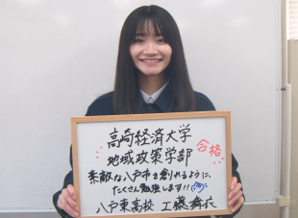 高崎経済大学
地域政策学部
合格
素敵な八戸市を創れるように、
たくさん勉強します!!
八戸東高校 工藤舞衣